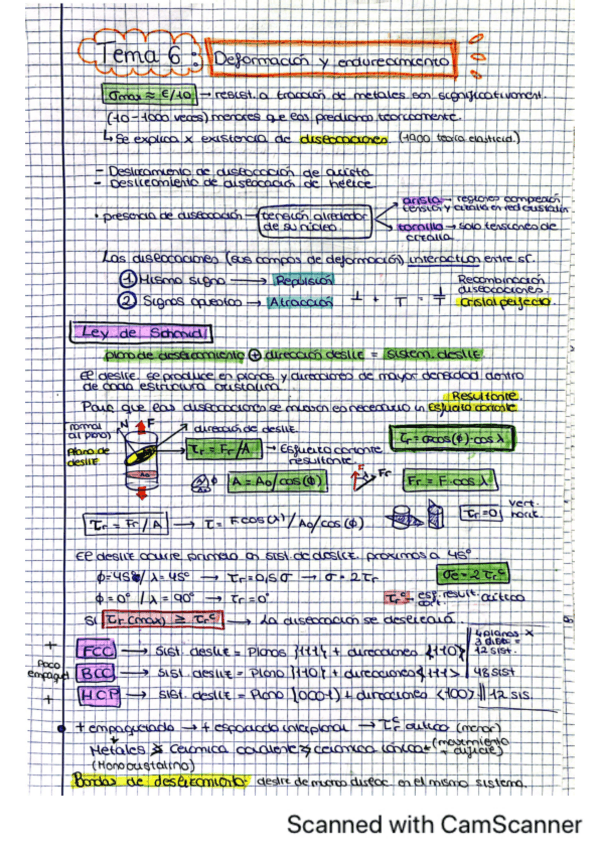 Tema 6 : Deformación y endurecimiento
σmax ≈ E/10 → resist. a tracción de metales son significativament.
(10-1000 veces) menores que las predichas teóricamente.
↳ Se explica x existencia de dislocaciones. (1900 teoría elasticid.)
- Deslizamiento de dislocación de arista
- Deslizamiento de dislocación de hélice
• presencia de dislocación → tensión alrededor de su núcleo
arista → regiones compresión tensión y cizalla en red cristalin.
tornillo → solo tensiones de cizalla.
Las dislocaciones (sus campos de deformación) interaction entre sí.
① Mismo signo → Repulsión
② Signos opuestos → Atracción
⊥ + T =
Recombinación dislocaciones.
Cristal perfecto.
Ley de Schmid
plano de deslizamiento ⊕ dirección desliz = sistem. desliz.
El desliz. se produce en planos y direcciones de mayor densidad dentro
de cada estructura cristalina.
Para que las dislocaciones se muevan es necesario un Esfuerzo cortante
Resultante.
normal al plano
N
F
Plano de desliz
A0
→ dirección de desliz.
τr = Fr/A → Esfuerzo cortante resultante.
τr = σ cos(ϕ)·cos λ
ϕ
A = A0/cos(ϕ)
F
Fr
Fr = F·cos λ
τr = Fr/A → τ = F cos(λ)/A0/cos(ϕ)
τr = 0
vert.
horiz.
El desliz ocurre primero en sist. de desliz. próximos a 45°
ϕ=45° / λ=45° → τr = 0,5σ → σ = 2τr
σc = 2τrc
ϕ=0° / λ=90° → τr = 0
τrc → esf. result. crítico
cort.
Si τr(max) ≥ τrc → La dislocación se deslizará.
+
Poco empaqu
+
FCC → Sist. desliz = Planos {111} + direcciones {110}
4 planos x
3 direc =
12 sist.
BCC → Sist. desliz = Plano {110} + direcciones <111> 48 sist
HCP → Sist. desliz = Plano {0001} + direcciones <100> 12 sis.
• + empaquetado → + espaciado interplanar → τrc crítico (menor)
Metales > cerámica covalente > cerámica iónica
(movimiento + difícil)
(Monocristalino)
Bandas de deslizamiento: desliz de muchas disloc en el mismo sistema.
Scanned with CamScanner